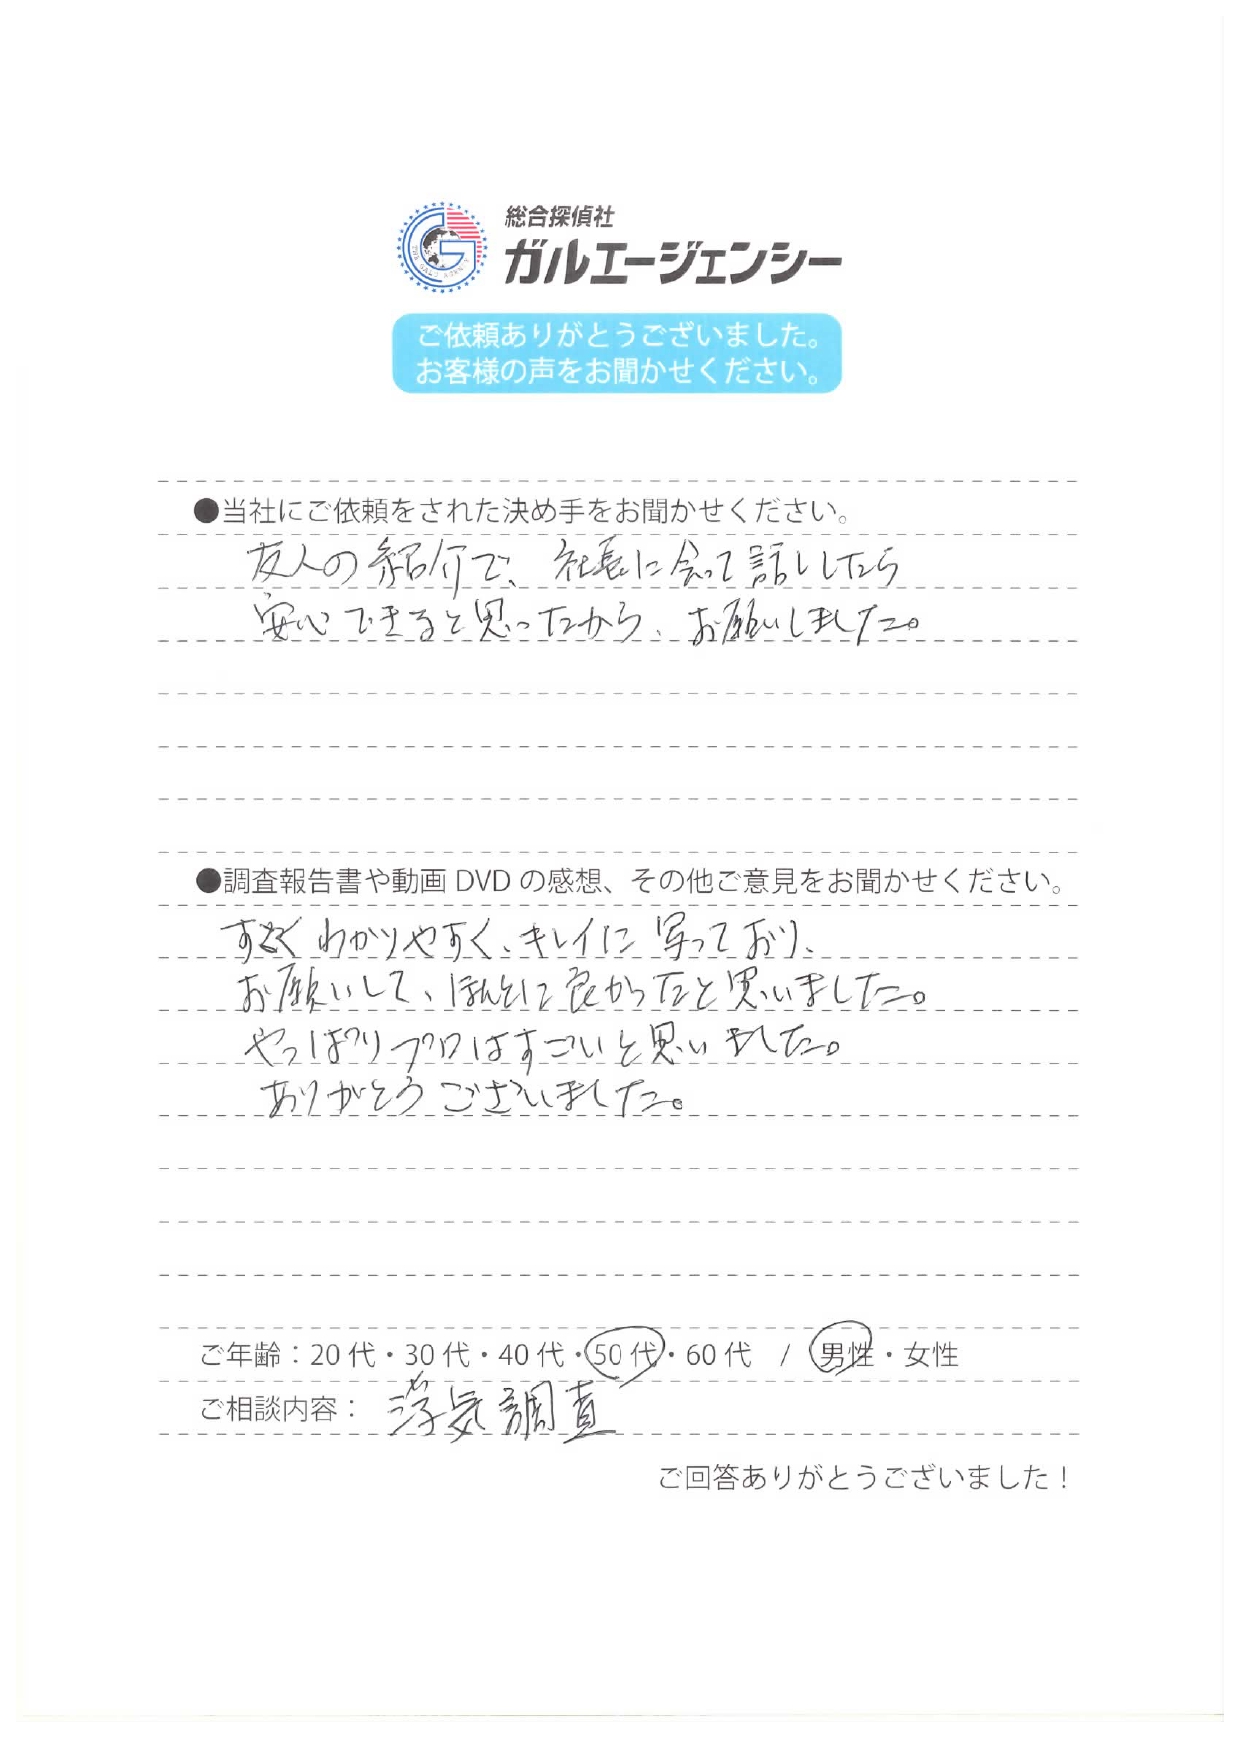 総合探偵社
ガルエージェンシー
ご依頼ありがとうございました。
お客様の声をお聞かせください。
●当社にご依頼をされた決め手をお聞かせください。
友人の紹介で、社長に会って話ししたら
安心できると思ったから、お願いしました。
●調査報告書や動画 DVD の感想、その他ご意見をお聞かせください。
すごく わかりやすく、キレイに 写っており、
お願いして、ほんとに良かったと思いました。
やっぱりプロはすごいと思いました。
ありがとうございました。
ご年齢：20 代・30 代・40 代・50 代・60 代 / 男性・女性
ご相談内容： 浮気調査
ご回答ありがとうございました！